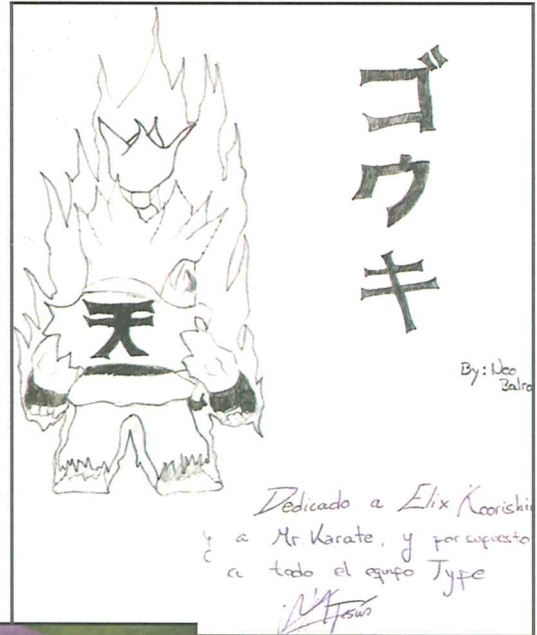 ゴウキ
天
By: Neo
Dedicado a Elix Koorishi
y a Mr. Karate, y por supuesto
a todo el equipo Type
Jesús